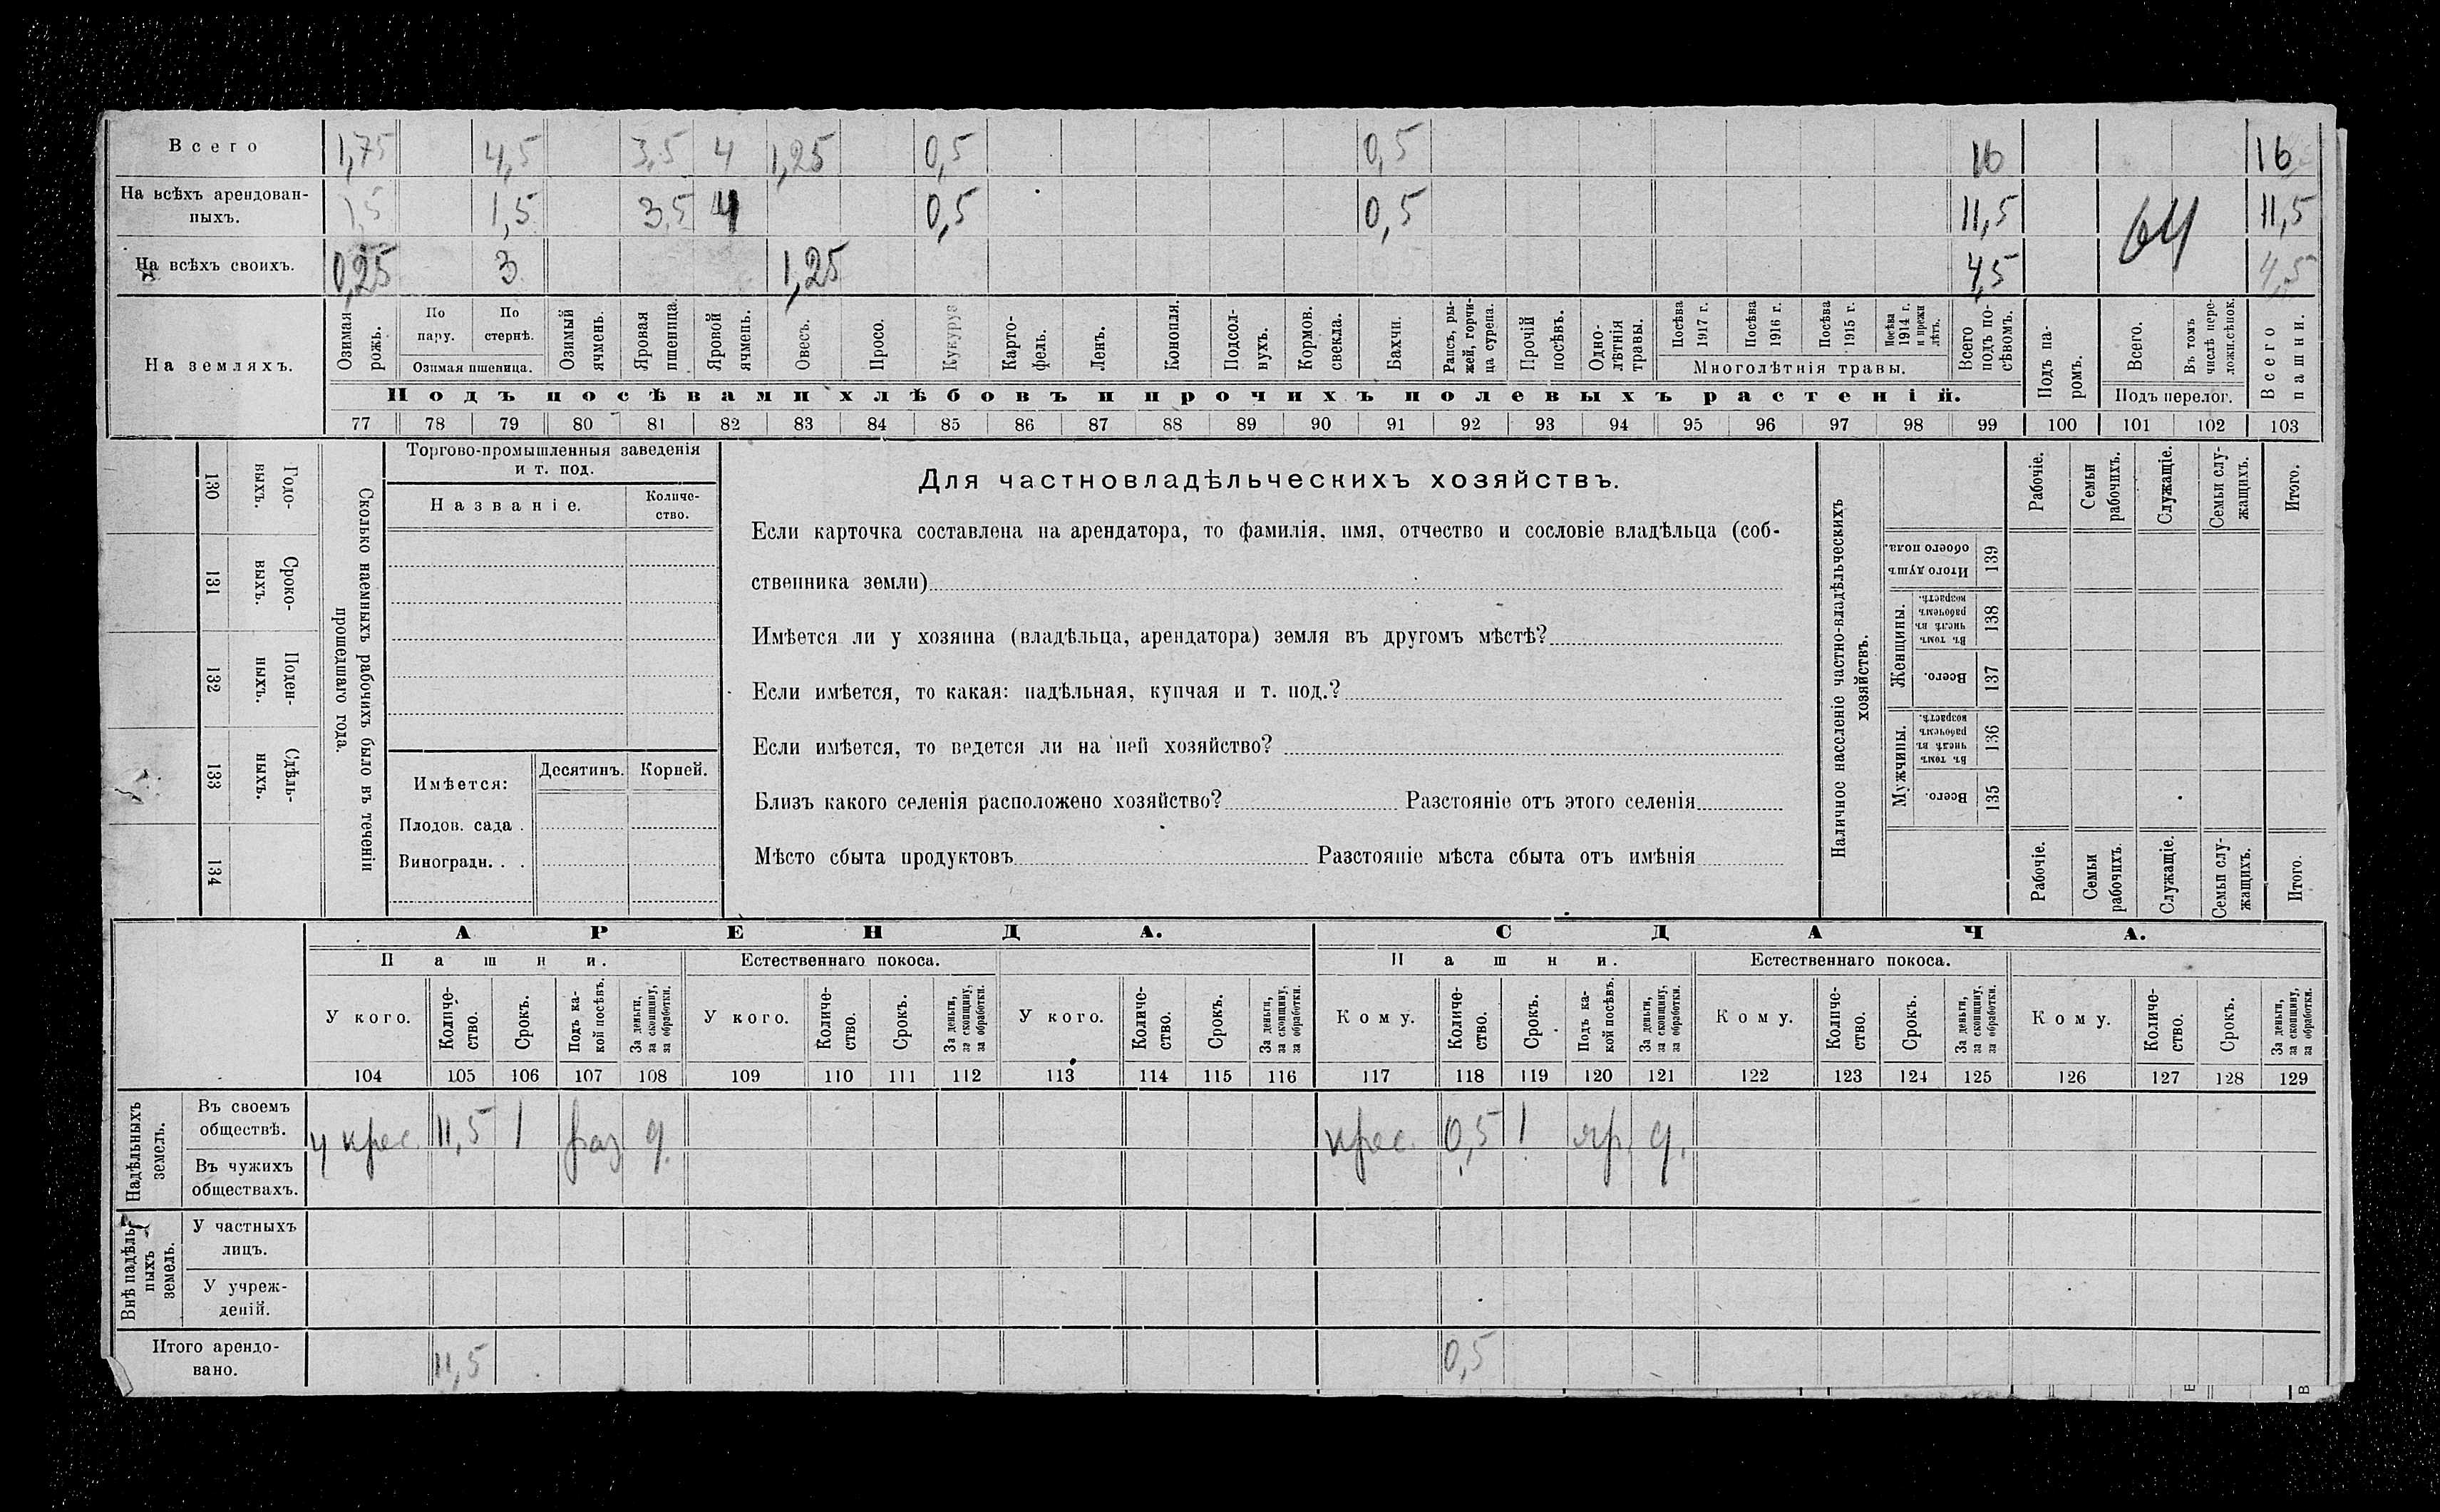 Всего 1,75 4,5 3,5 4 1,25 0,5 0,5 16 16
На всѣхъ арендован-
ныхъ. 1,5 1,5 3,5 4 0,5 0,5 11,5 64 11,5
На всѣхъ своихъ. 0,25 3 1,25 4,5 4,5
На земляхъ.
Озимая рожь.
По пару.
По стернѣ.
Озимая пшеница.
Озимый ячмень.
Яровая пшеница.
Яровой ячмень.
Овесъ.
Просо.
Кукуруза
Карто-
фель.
Ленъ.
Конопля.
Подсол-
нухъ.
Кормов.
свекла.
Бахчи.
Рапсъ, ры-
жей, горчи-
ца сурепа.
Прочій
посѣвъ.
Одно-
лѣтнія
травы.
Посѣва
1917 г.
Посѣва
1916 г.
Посѣва
1915 г.
Посѣва
1914 г.
и прежн
лѣтъ.
Многолѣтнія травы.
Всего
подъ по-
сѣвомъ.
Подъ па-
ромъ.
Всего.
Въ томъ
числѣ пере-
ложн.сѣнок.
Подъ перелог.
Всего
пашни.
Подъ посѣвами хлѣбовъ и прочихъ полевыхъ растеній.
77 78 79 80 81 82 83 84 85 86 87 88 89 90 91 92 93 94 95 96 97 98 99 100 101 102 103
130 Годо-
выхъ.
131 Сроко-
выхъ.
132 Поден-
ныхъ.
133 Сдѣль-
ныхъ.
134
Сколько наемныхъ рабочихъ было въ теченіи
прошедшаго года.
Торгово-промышленныя заведенія
и т. под.
Названіе.
Количе-
ство.
Имѣется:
Десятинъ.
Корней.
Плодов. сада .
Виноградн. . .
Для частновладѣльческихъ хозяйствъ.
Если карточка составлена на арендатора, то фамилія, имя, отчество и сословіе владѣльца (соб-
ственника земли)
Имѣется ли у хозяина (владѣльца, арендатора) земля въ другомъ мѣстѣ?
Если имѣется, то какая: надѣльная, купчая и т. под.?
Если имѣется, то ведется ли на ней хозяйство?
Близъ какого селенія расположено хозяйство? Разстояніе отъ этого селенія
Мѣсто сбыта продуктовъ Разстояніе мѣста сбыта отъ имѣнія
Наличное населеніе частно-владѣльческихъ
хозяйствъ.
Рабочіе.
Семьи
рабочихъ.
Служащіе.
Семьи слу-
жащихъ.
Итого.
Итого душъ
обоего пола.
139
Женщины.
Въ томъ
числѣ въ
рабочемъ
возрастѣ.
138
Всего.
137
Мужчины.
Въ томъ
числѣ въ
рабочемъ
возрастѣ.
136
Всего.
135
Рабочіе.
Семьи
рабочихъ.
Служащіе.
Семьи слу-
жащихъ.
Итого.
АРЕНДА. СДАЧА.
Пашни. Естественнаго покоса. Пашни. Естественнаго покоса.
У кого.
Количе-
ство.
Срокъ.
Подъ ка-
кой посѣвъ.
За деньги,
за скопщину,
за обработки.
У кого.
Количе-
ство.
Срокъ.
За деньги,
за скопщину,
за обработки.
У кого.
Количе-
ство.
Срокъ.
За деньги,
за скопщину,
за обработки.
Кому.
Количе-
ство.
Срокъ.
Подъ ка-
кой посѣвъ.
За деньги,
за скопщину,
за обработки.
Кому.
Количе-
ство.
Срокъ.
За деньги,
за скопщину,
за обработки.
Кому.
Количе-
ство.
Срокъ.
За деньги,
за скопщину,
за обработки.
104 105 106 107 108 109 110 111 112 113 114 115 116 117 118 119 120 121 122 123 124 125 126 127 128 129
Надѣльныхъ
земель.
Въ своемъ
обществѣ.
у крес. 11,5 1 раз д. крес. 0,5 1 яр. д.
Въ чужихъ
обществахъ.
Внѣ надѣль-
ныхъ
земель.
У частныхъ
лицъ.
У учреж-
деній.
Итого арендо-
вано. 11,5 0,5